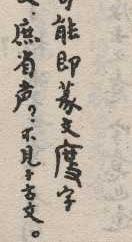 可能即篆文廋字
文，庶省声？不見于古文。